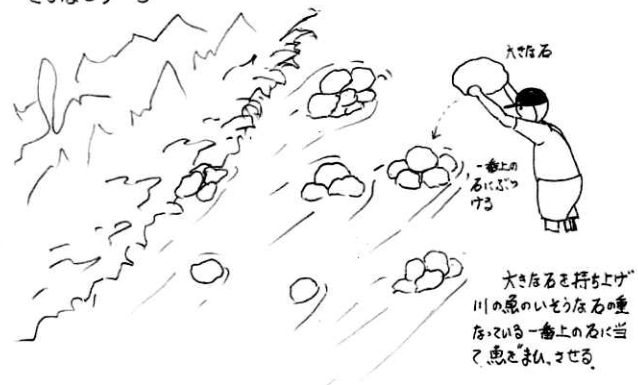 大きな石
一番上の
石にぶつ
ける
大きな石を持ち上げ
川の魚のいそうな石の重
なっている一番上の石に当
て、魚をまひ、させる。